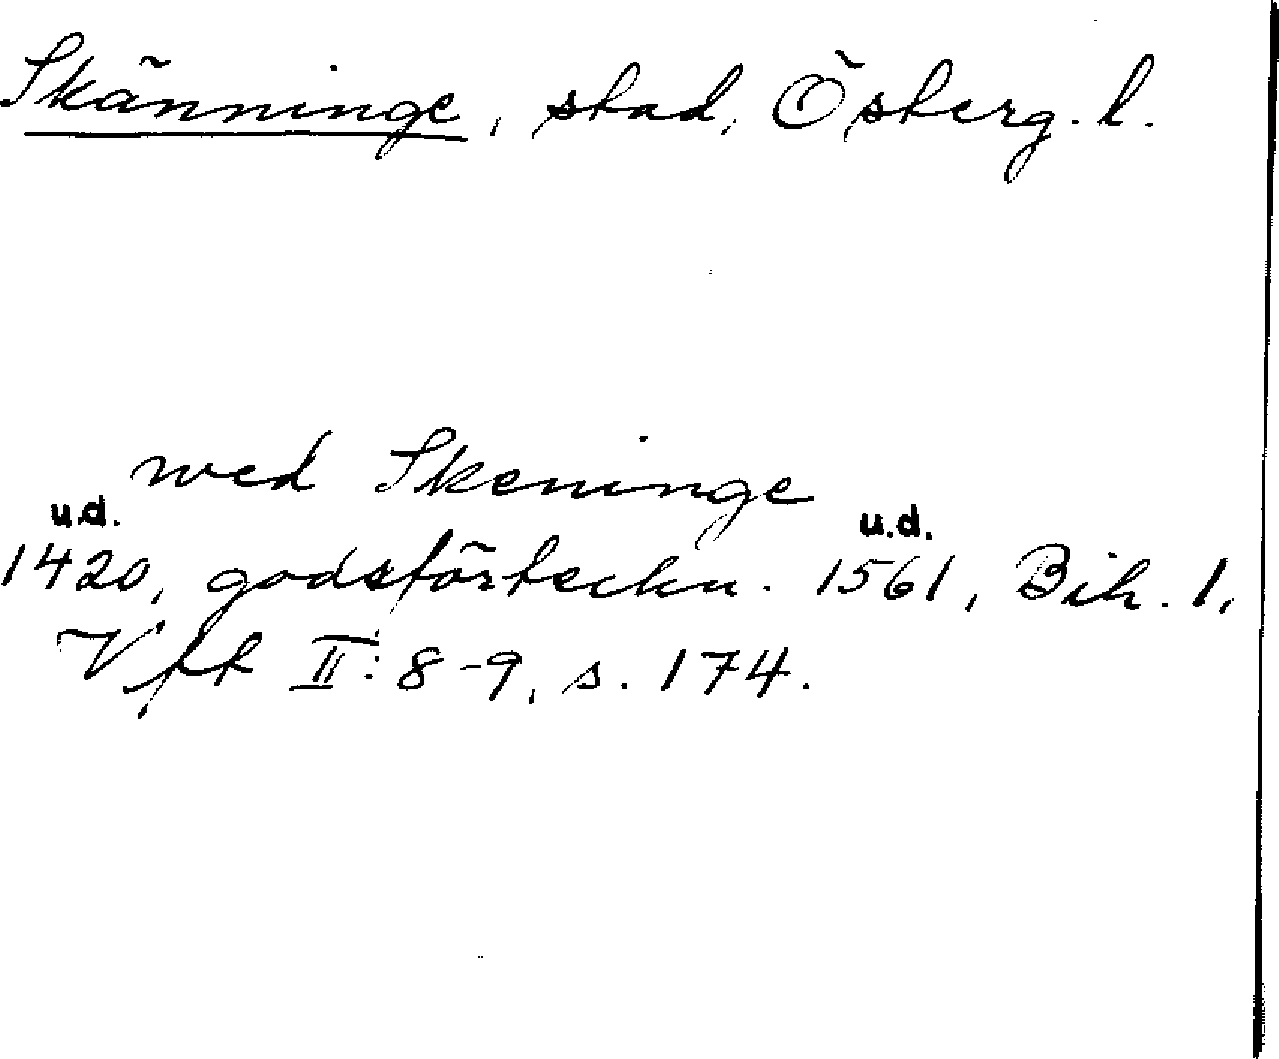 Skänninge, stad, Österg. l.
wed Skeninge
u.d. u.d.
1420, godsförteckn. 1561, Bih. 1,
Vft II:8-9, s. 174.